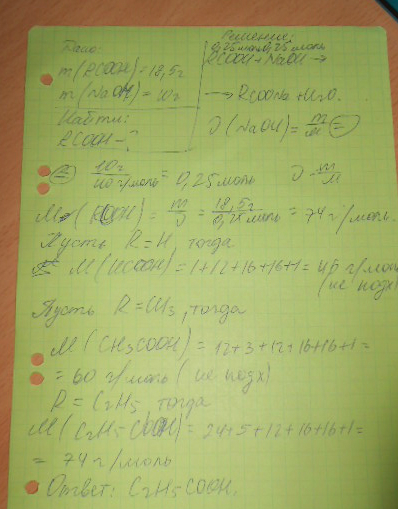 Дано:
m(RCOOH)=18,5г
m(NaOH)=10г
Найти:
RCOOH-?
Решение:
0,25моль 0,25моль
RCOOH+NaOH→
→RCOONa+H2O.
υ(NaOH)=m/M=
=10г/40г/моль=0,25моль υ=m/M
M(RCOOH)=m/υ=18,5г/0,25моль=74г/моль.
Пусть R=H, тогда
M(HCOOH)=1+12+16+16+1=46г/моль
(не подх)
Пусть R=CH3, тогда
M(CH3COOH)=12+3+12+16+16+1=
=60г/моль(не подх)
R=C2H5 тогда
M(C2H5-COOH)=24+5+12+16+16+1=
=74г/моль
Ответ: C2H5COOH.